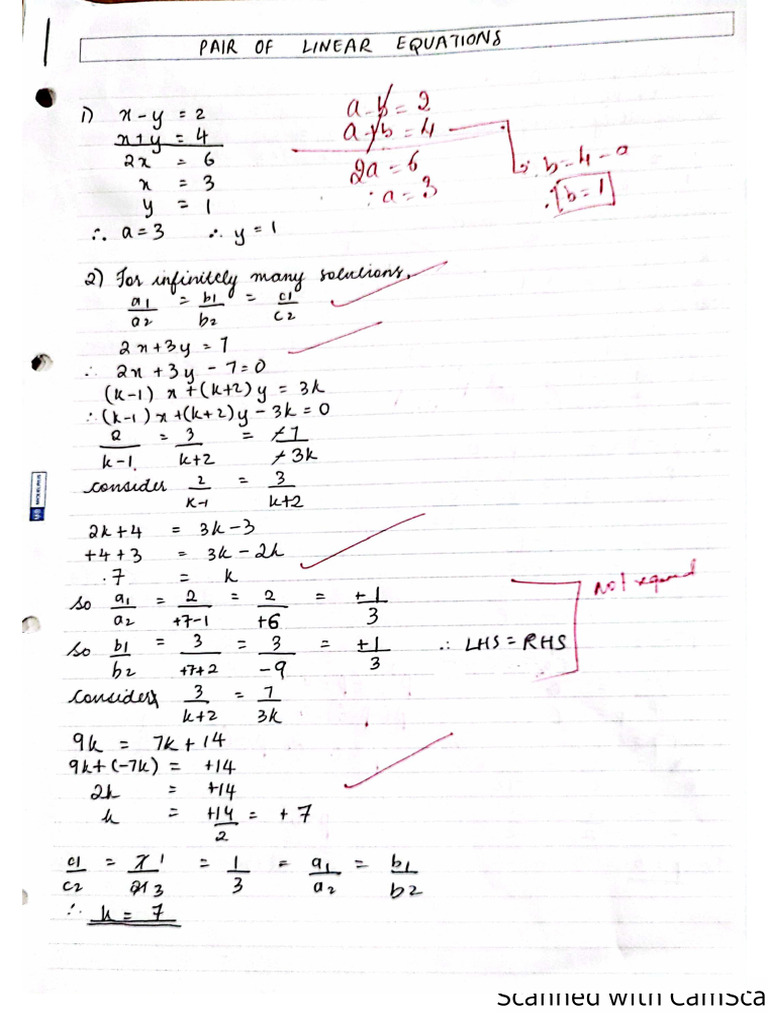 PAIR OF LINEAR EQUATIONS
1) x - y = 2
x + y = 4
2x = 6
x = 3
y = 1
∴ a = 3 ∴ y = 1
a - b = 2
a + b = 4
2a = 6
∴ a = 3
∴ b = 4 - a
∴ b = 1
2) For infinitely many solutions,
a1/a2 = b1/b2 = c1/c2
2x + 3y = 7
∴ 2x + 3y - 7 = 0
(k-1) x + (k+2) y = 3k
∴ (k-1) x + (k+2) y - 3k = 0
2/k-1 = 3/k+2 = -7/-3k
consider 2/k-1 = 3/k+2
2k + 4 = 3k - 3
+4 + 3 = 3k - 2k
7 = k
so a1/a2 = 2/+7-1 = 2/+6 = +1/3
so b1/b2 = 3/+7+2 = 3/-9 = +1/3 ∴ LHS = RHS
Not required
consider 3/k+2 = 7/3k
9k = 7k + 14
9k + (-7k) = +14
2k = +14
k = +14/2 = + 7
c1/c2 = 7 1/21 3 = 1/3 = a1/a2 = b1/b2
∴ k = 7
Scanned with CamSca